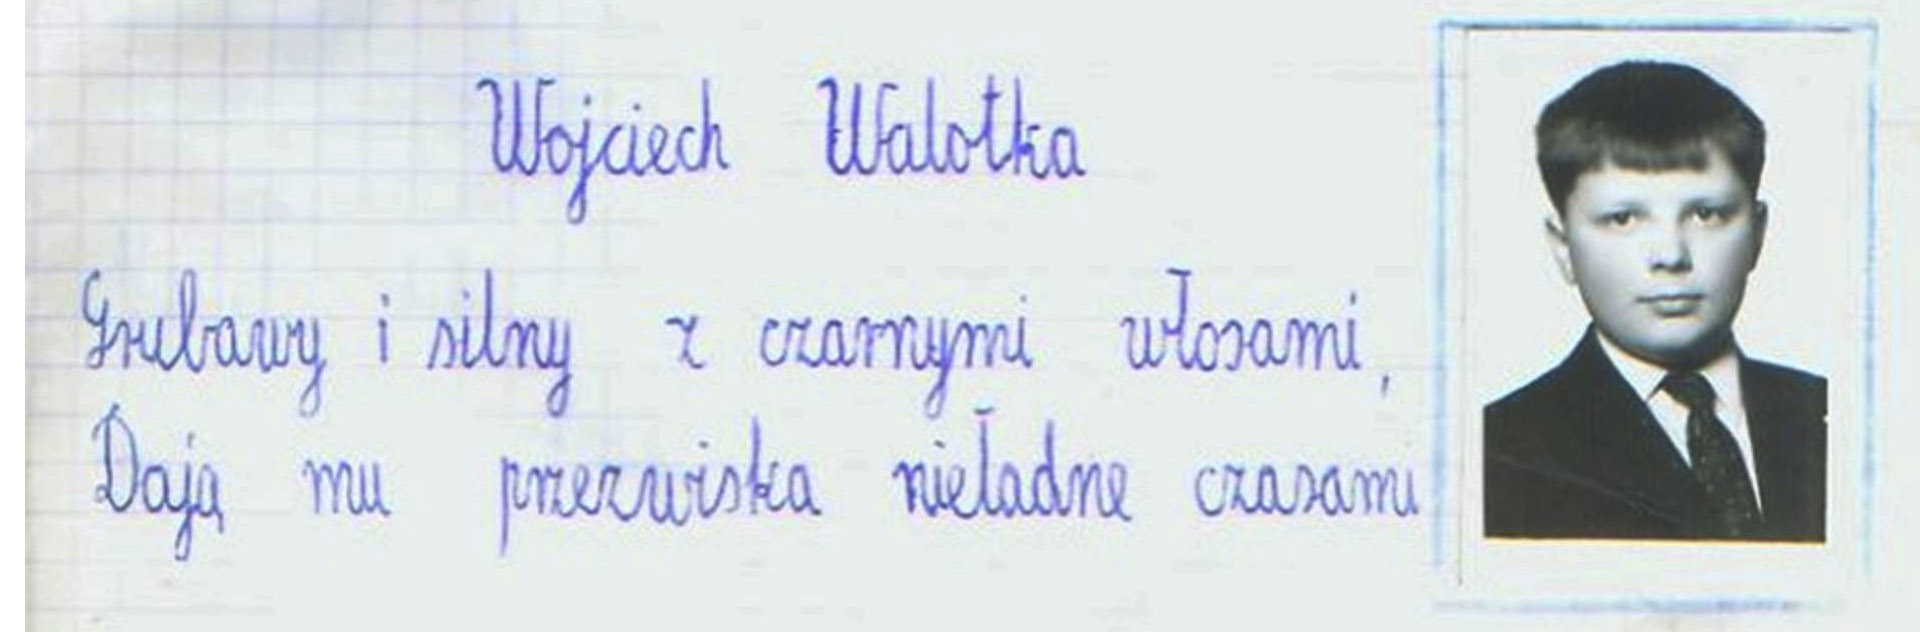 Wojciech Walotka
Grubawy i silny z czarnymi włosami,
Dają mu przezwiska nieładne czasami